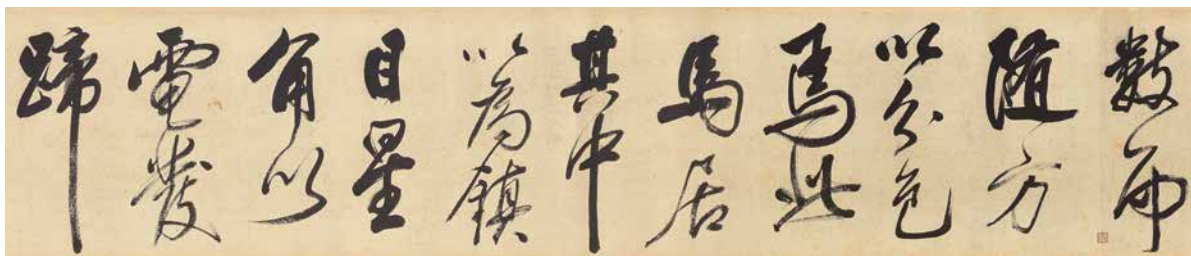 數而
隨方
以分色
焉此
馬居
其中
以為鎮
目星
角以
電發
蹄